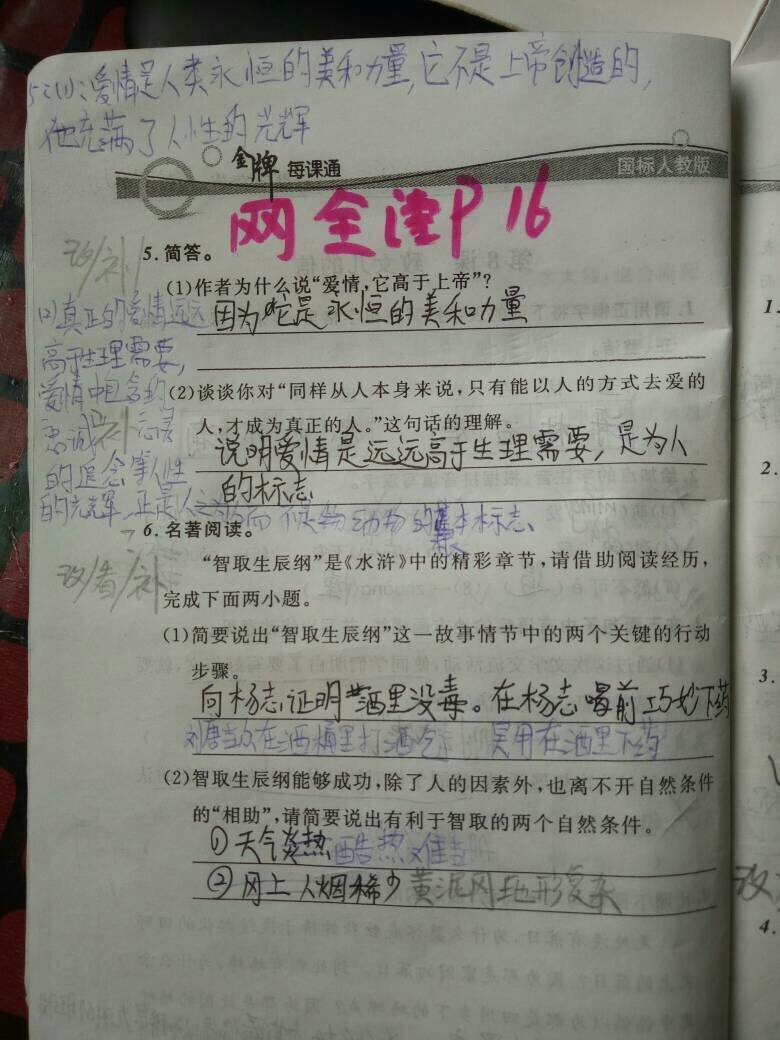 5.(1)、爱情是人类永恒的美和力量,它不是上帝创造的,
他充满了人性的光辉
金牌 每课通
国标人教版
网全津P16
改/补
5. 简答。
(1)作者为什么说“爱情,它高于上帝”?
因为它是永恒的美和力量
(2)真正的爱情远远
高于生理需要,
爱情中包含的
忠诚
的追念等人性
的光辉,正是人之为
(2)谈谈你对“同样从人本身来说,只有能以人的方式去爱的
人,才成为真正的人。”这句话的理解。
说明爱情是远远高于生理需要,是为人
的标志
动物的基本标志
6. 名著阅读。
改/看/补
“智取生辰纲”是《水浒》中的精彩章节,请借助阅读经历,
完成下面两小题。
(1)简要说出“智取生辰纲”这一故事情节中的两个关键的行动
步骤。
向杨志证明酒里没毒。在杨志喝前巧妙下药
刘唐当众在酒桶里打酒吃 吴用在酒里下药
(2)智取生辰纲能够成功,除了人的因素外,也离不开自然条件
的“相助”,请简要说出有利于智取的两个自然条件。
①天气炎热 酷热难当
②冈上人烟稀少 黄泥冈地形复杂
1.
2.
3.
改
4.